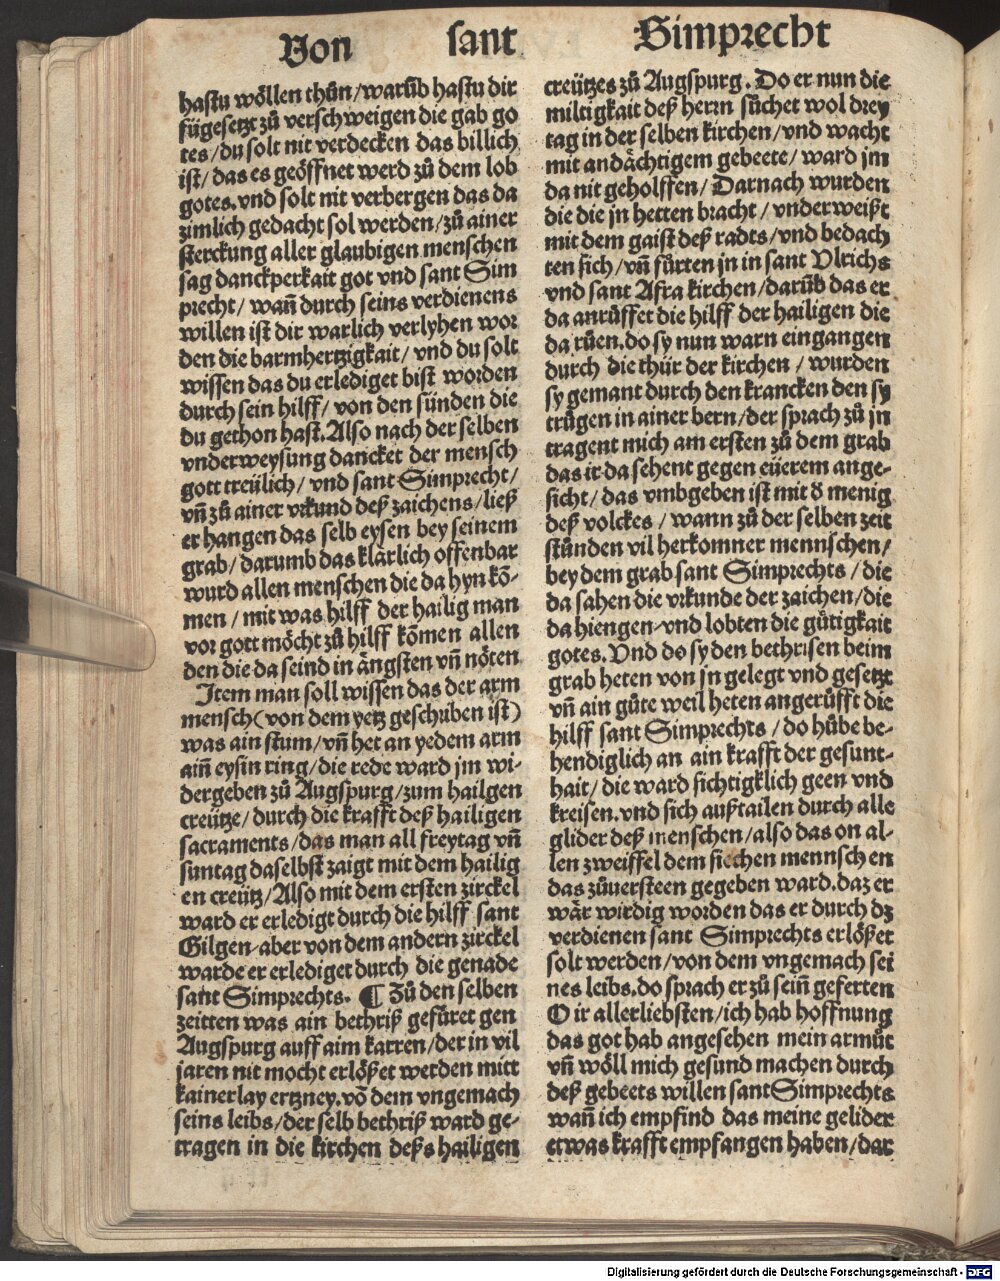 Von sant Simprecht
hastu wöllen thůn/warůb hastu dir
fůgesetzt zů verschweigen die gab go
tes/du solt nit verdecken das billich
ist/das es geöffnet werd zů dem lob
gotes. vnd solt nit verbergen das da
zimlich gedacht sol werden/zů ainer
sterckung aller glaubigen menschen
sag danckperkait got vnd sant Sim
precht/wañ durch seins verdienens
willen ist dir warlich verlyhen wor
den die barmhertzigkait/vnd du solt
wissen das du erlediget bist worden
durch sein hilff/von den sünden die
du gethon hast. Also nach der selben
vnderweysung dancket der mensch
gott treülich/vnd sant Simprecht/
vñ zů ainer vrkund deß zaichens/ließ
er hangen das selb eysen bey seinem
grab/darumb das klärlich offenbar
wurd allen menschen die da hyn kõ-
men/mit was hilff der hailig man
vor gott möcht zů hilff kõmen allen
den die da seind in ängsten vñ nöten
Item man soll wissen das der arm
mensch (von dem yetz geschriben ist)
was ain stum/vñ het an yedem arm
aiñ eysin ring/die rede ward jm wi-
dergeben zů Augspurg/zum hailgen
creütze/durch die krafft deß hailigen
sacraments/das man all freytag vñ
suntag daselbst zaigt mit dem hailig
en creütz/Also mit dem ersten zirckel
ward er erledigt durch die hilff sant
Gilgen-aber von dem andern zirckel
warde er erlediget durch die genade
sant Simprechts. ¶ Zů den selben
zeitten was ain bethriß gefüret gen
Augspurg auff aim karren/der in vil
jaren nit mocht erlößet werden mitt
kainerlay ertzney. võ dem vngemach
seins leibs/der selb bethriß ward ge-
tragen in die kirchen deßs hailigen
creützes zů Augspurg. Do er nun die
miltigkait deß herrn sůchet wol drey
tag in der selben kirchen/vnd wacht
mit andächtigem gebeete/ward jm
da nit geholffen/Darnach wurden
die die jn hetten bracht/vnderweißt
mit dem gaist deß radts/vnd bedach
ten sich/vñ fůrten jn in sant Vlrichs
vnd sant Afra kirchen/darůb das er
da anrůffet die hilff der hailigen die
da růen. do sy nun warn eingangen
durch die thür der kirchen/wurden
sy gemant durch den krancken den sy
trůgen in ainer bern/der sprach zů jn
tragent mich am ersten zů dem grab
das ir da sehent gegen eüerem ange-
sicht/das vmbgeben ist mit d̕ menig
deß volckes/wann zů der selben zeit
stůnden vil herkomner mennschen/
bey dem grab sant Simprechts/die
da sahen die vrkunde der zaichen/die
da hiengen-vnd lobten die gůtigkait
gotes. Vnd do sy den bethrisen beim
grab heten von jn gelegt vnd gesetzt
vñ ain gůte weil heten angerůfft die
hilff sant Simprechts/do hůbe be-
hendiglich an ain krafft der gesunt-
hait/die ward sichtigklich geen vnd
kreisen. vnd sich außtailen durch alle
glider deß menschen/also das on al-
len zweiffel dem siechen mennschen
das zůuersteen gegeben ward. daz er
wär wirdig worden das er durch dz
verdienen sant Simprechts erlößet
solt werden/von dem vngemach sei
nes leibs. do sprach er zů seiñ geferten
O ir allerliebsten/ich hab hoffnung
das got hab angesehen mein armůt
vñ wöll mich gesund machen durch
deß gebeets willen sant Simprechts
wañ ich empfind das meine gelider
etwas krafft empfangen haben/dar
Digitalisierung gefördert durch die Deutsche Forschungsgemeinschaft - DFG